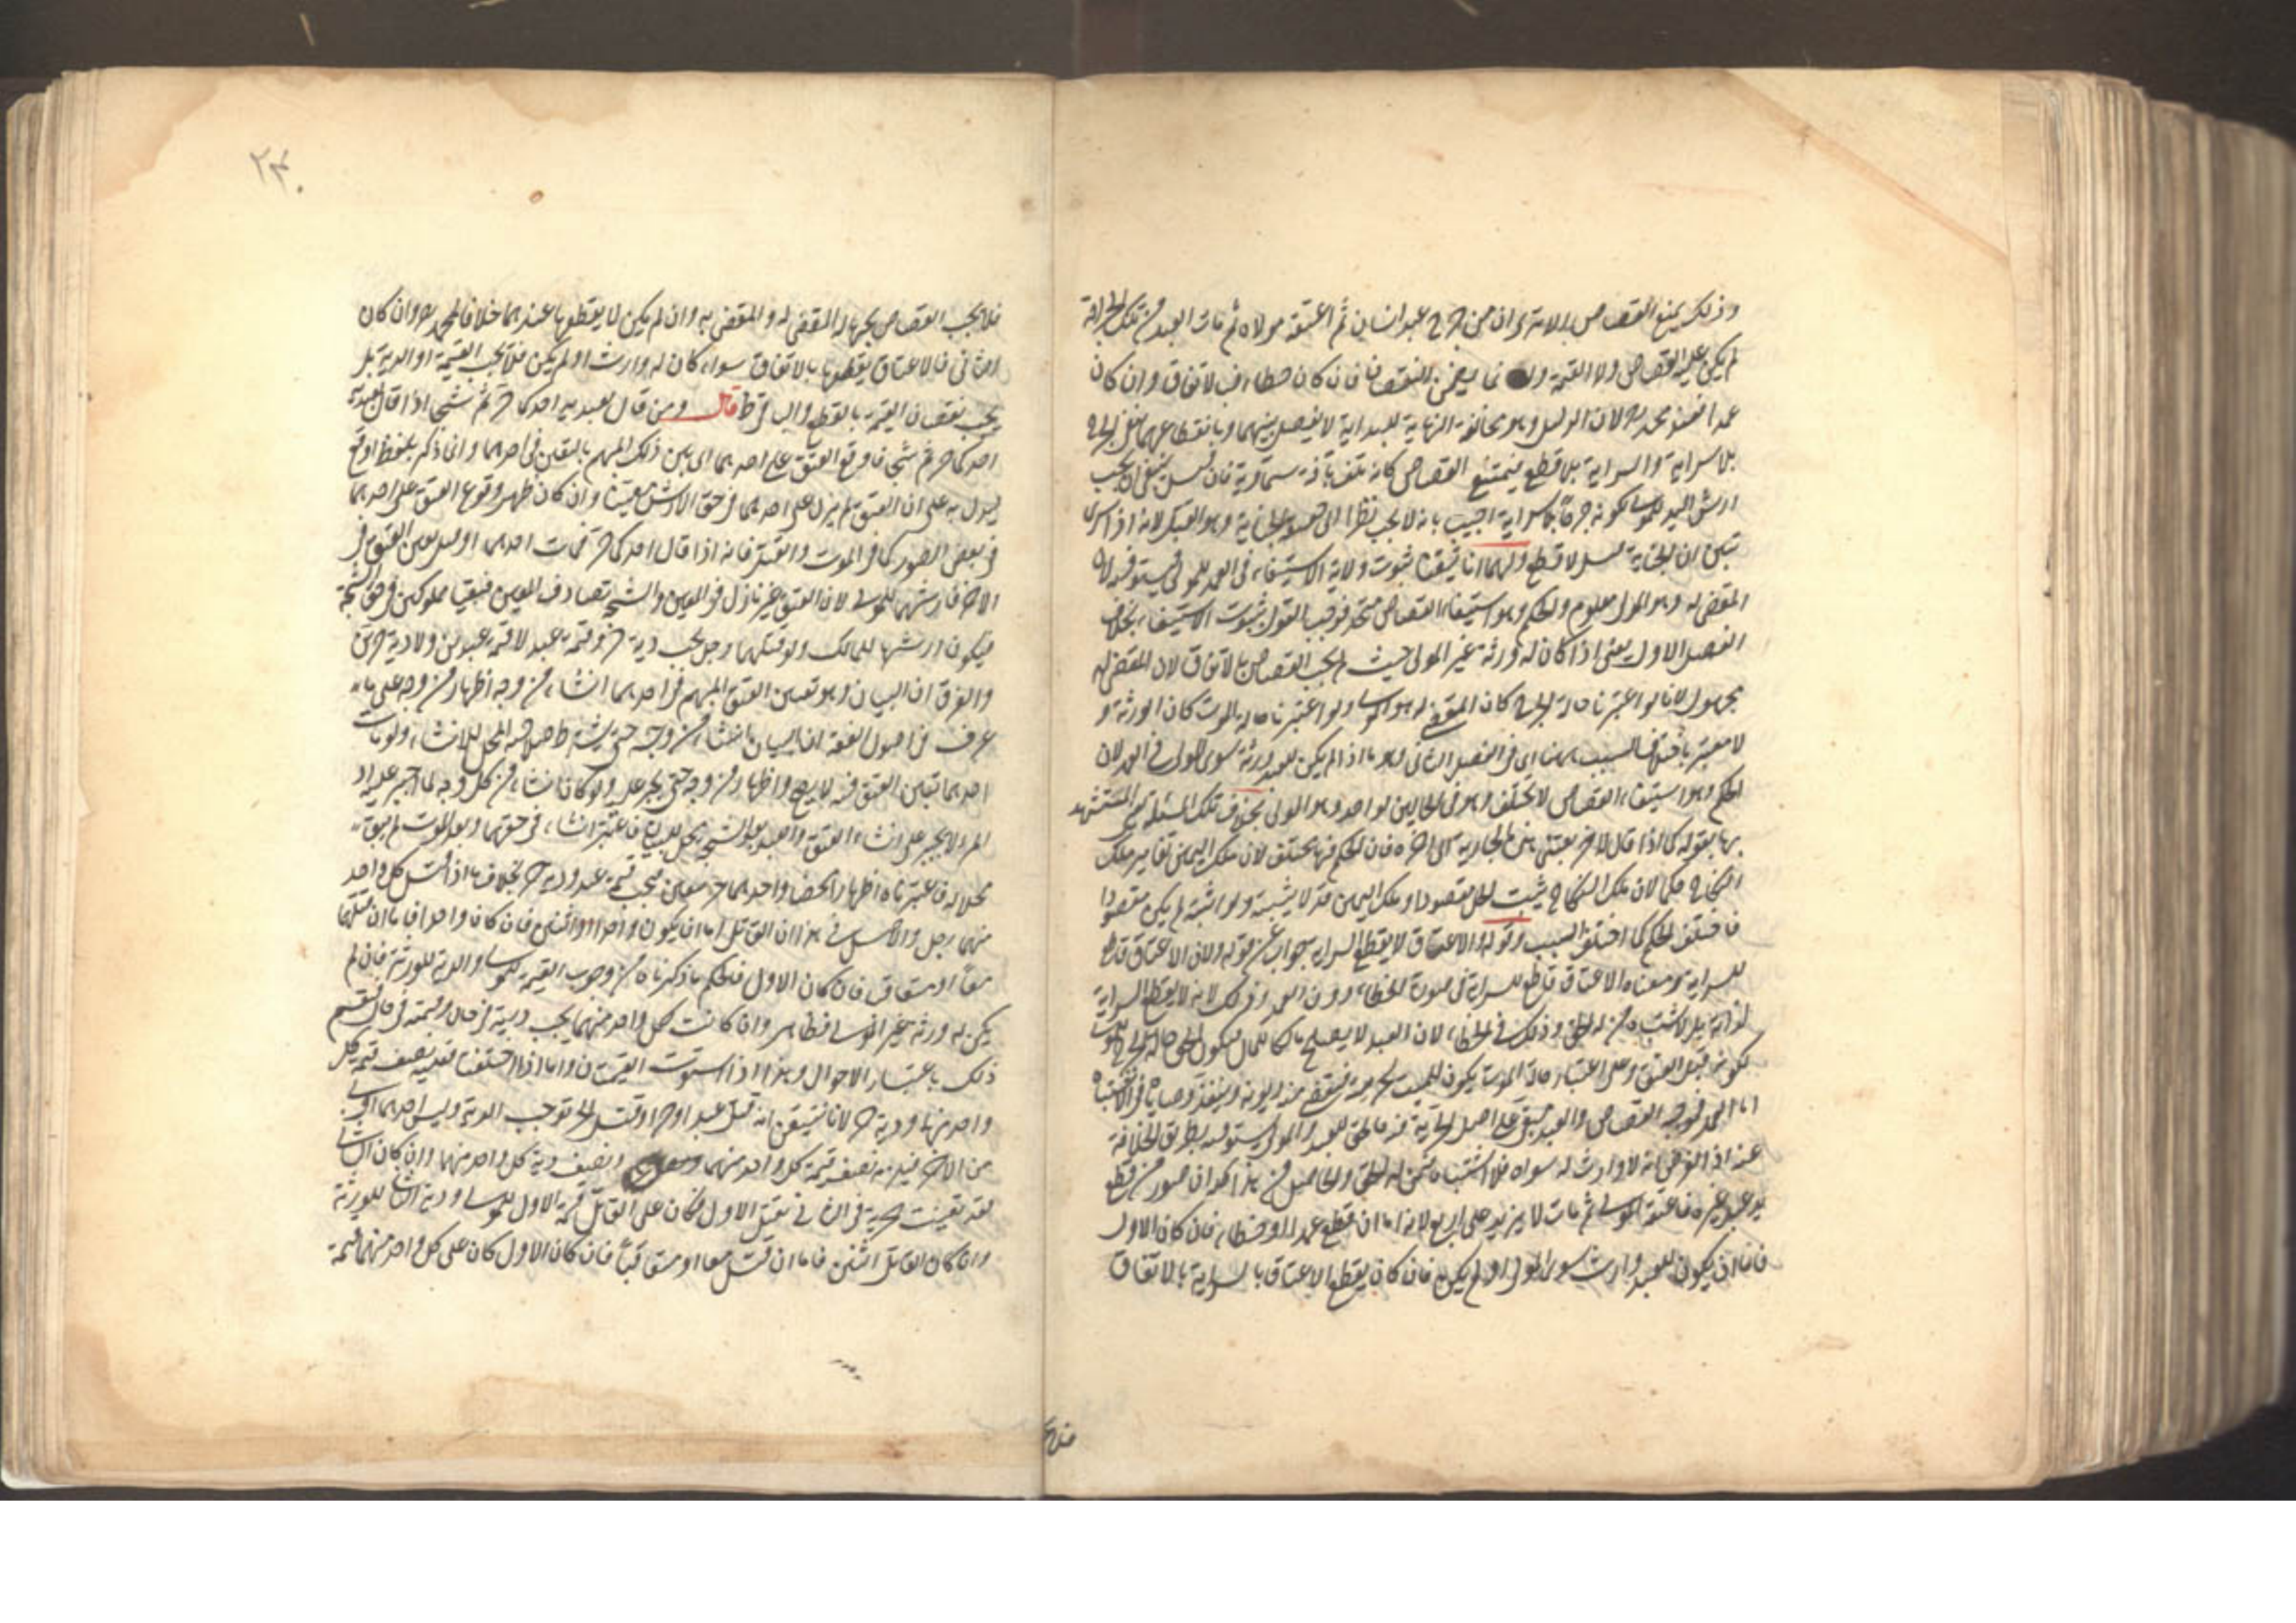 وذلك يمنع القصاص بالاسرى وان من جرح عبد انسان ثم اعتقه مولاه ثم مات العبد من تلك الجراحة
لم يكن عليه القصاص ولا القيمة وانما يضمن النقصان فان كان خطا فبالاتفاق وان كان
عمدا فعند محمد رح لان الدليل وهو مخالفة النهاية للبداية لا يفصل بينهما وبانقطاعهما بقى الجرح
بلا سراية والسراية بلا قطع فيمتنع القصاص كانه تلف بآفة سماوية فان قيل ينبغى ان يجب
ارش اليد للمولى كونه جرحا بلا سراية اجيب بانه لا يجب نظرا الى الجناية وهو العبد لانه اذا سرى
تبين ان الجناية قتل لا قطع ولهما انا تيقنا ثبوت ولاية الاستيفاء فى العمد للمولى فيستوفيه لان
المقضى له وهو المولى معلوم والحكم وهو استيفاء القصاص متحد فوجب القول بثبوت الاستيفاء بخلاف
الفصل الاول يعنى اذا كان له ورثة غير المولى حيث لم يجب القصاص بالاتفاق لان المقضى له
مجهول لانا لو اعتبرنا حالة الجرح كان المقضى له هو المولى ولو اعتبرنا حالة الموت كان الورثة و
لا معتبر باختلاف السبب ههنا اى فى الفصل الثانى وهو ما اذا لم يكن للعبد ورثة سوى المولى فى العمد لان
الحكم وهو استيفاء القصاص لا يختلف وهو فى الحالين لواحد وهو المولى بخلاف تلك المسئلة المستشهد
بها بقوله كما اذا قال لاخر بعتنى هذه الجارية الى اخره فان الحكم فيها مختلف لان ملك اليمين تغاير ملك
النكاح حكما لان ملك النكاح يثبت الحل مقصودا وملك اليمين قد لا يثبته ولو اثبته لم يكن مقصودا
فاختلف الحكم كما اختلف السبب وقوله والاعتاق لا يقطع السراية جواب عن قوله ولان الاعتاق قاطع
للسراية ومعناه الاعتاق قاطع للسراية فى صورة الخطاء دون العمد وذلك لانه لا يقطع السراية
لذاته بل لاشتباه من له الحق وذلك فى الخطاء لان العبد لا يصلح مالكا للمال فيكون الحق حالة الجرح للمولى
لكونه قبل العتق وعلى اعتبار حالة الموت يكون للميت لحريته فيقضى منه ديونه وينفذ وصاياه فجاء الاشتباه
اما العمد فموجبه القصاص والعبد مبقى على اصل الحرية فيه فالحق للعبد والمولى يستوفيه بطريق الخلافة
عنه اذ الفرض انه لا وارث له سواه فلا اشتباه فيمن له الحق والحاصل من هذا كله ان صور من قطع
يد عبد غيره فاعتقه المولى ثم مات لا يزيد على اربع لانه اما ان قطع عمدا او خطاء فان كان الاول
فاما ان يكون للعبد وارث سوى المولى او لم يكن فان كان يقطع الاعتاق بالسراية بالاتفاق
فلا
٢٣٠
فلا يجب القصاص بجهالة المقضى له والمقضى به وان لم يكن لا يقطعها عندهما خلافا لمحمد رح وان كان
الثانى فالاعتاق يقطعها بالاتفاق سواء كان له وارث او لم يكن فلا يجب القيمة او الدية بل
يجب نقصان القيمة بالقطع والسراية ساقطة قال ومن قال لعبديه احدكما حر ثم شجا اذا قال لعبديه
احدكما حر ثم شجا فاوقع العتق على احدهما اى بين ذلك المبهم بالتعيين فى احدهما وانما ذكر بلفظ اوقع
ليدل به على ان العتق لم ينزل على احدهما فى حق الارش معينا وان كان ظهر وقوع العتق على احدهما
فى بعض الصور كما فى الموت والقتل فانه اذا قال احدكما حر فمات احدهما او قتل يعين العتق فى
الاخر فارشهما للمولى لان العتق غير نازل فى المعين والشجة تصادف المعين فبقيا مملوكين فى حق الشجة
فيكون ارشها للمالك ولو قتلهما رجل يجب دية حر وقيمة عبد لا قيمة عبدين ولا دية حرين
والفرق ان البيان وهو تعيين العتق المبهم فى احدهما انشاء من وجه اظهار من وجه على ما
عرف فى اصول الفقه ان البيان انشاء من وجه حتى يشترط صلاحية المحل للانشاء ولو مات
احدهما فبين العتق فيه لا يصح واظهار من وجه حتى يجبر عليه ولو كان انشاء من كل وجه لما اجبر عليه اذ
المرء لا يجبر على انشاء العتق والعبد بعد الشجة محل للبيان فاعتبر انشاء فى حقهما وبعد الموت لم يبق
محلا له فاعتبرناه اظهارا محضا واحدهما حر بيقين فيجب قيمة عبد ودية حر بخلاف ما اذا قتل كل واحد
منهما رجل والاصل فى هذا ان القاتل اما ان يكون واحدا او اثنين فان كان واحدا فاما ان قتلهما
معا او متعاقبا فان كان الاول فالحكم ما ذكرناه من وجوب القيمة للمولى والدية للورثة فان لم
يكن له ورثة غير المولى فظاهر وان كانت كل واحد منهما يجب ديته فى حال وقيمته فى حال فينقسم
ذلك باعتبار الاحوال وهذا اذا استوت القيمتان واما اذا اختلفتا فعليه نصف قيمة كل
واحد منهما ودية حر لانا نتيقن انه قتل عبدا وحرا وقتل الحر يوجب الدية وليس احدهما اولى
من الاخر فيلزمه نصف قيمة كل واحد منهما ونصف دية كل واحد منهما وان كان الثانى
فقد تعينت حرية الثانى بقتل الاول فكان على القاتل قيمة الاول للمولى ودية الثانى للورثة
وان كان القاتل اثنين فاما ان قتل معا او متعاقبا فان كان الاول كان على كل واحد منهما قيمة